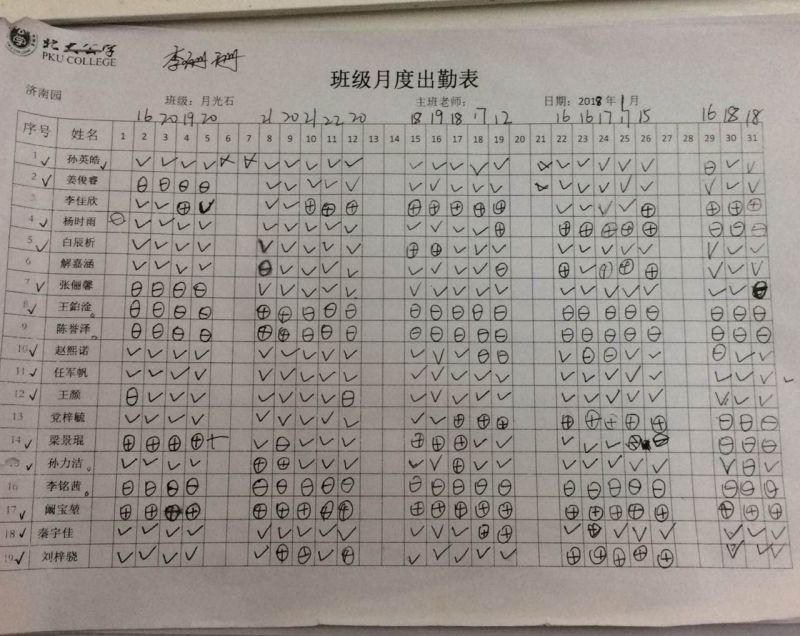 北大公学
PKU COLLEGE
李珊珊
班级月度出勤表
济南园 班级：月光石 主班老师： 日期：2018年1月
16 20 19 20 21 20 21 22 20 18 19 18 17 12 16 16 17 17 15 16 18 18
序号 姓名 1 2 3 4 5 6 7 8 9 10 11 12 13 14 15 16 17 18 19 20 21 22 23 24 25 26 27 28 29 30 31
1 ✓ 孙英皓 ✓
2 ✓ 姜俊睿
3 李佳欣
4 ✓ 杨时雨
5 ✓ 白辰析
6 解嘉涵
7 ✓ 张俪馨
8 ✓ 王鉑淦
9 陈誉泽
10 ✓ 赵熙诺
11 ✓ 任军帆
12 ✓ 王颜
13 党梓毓
14 ✓ 梁景琨
15 ✓ 孙力洁
16 李铭茜
17 ✓ 阚宝堃
18 ✓ 秦宇佳
19 ✓ 刘梓骁